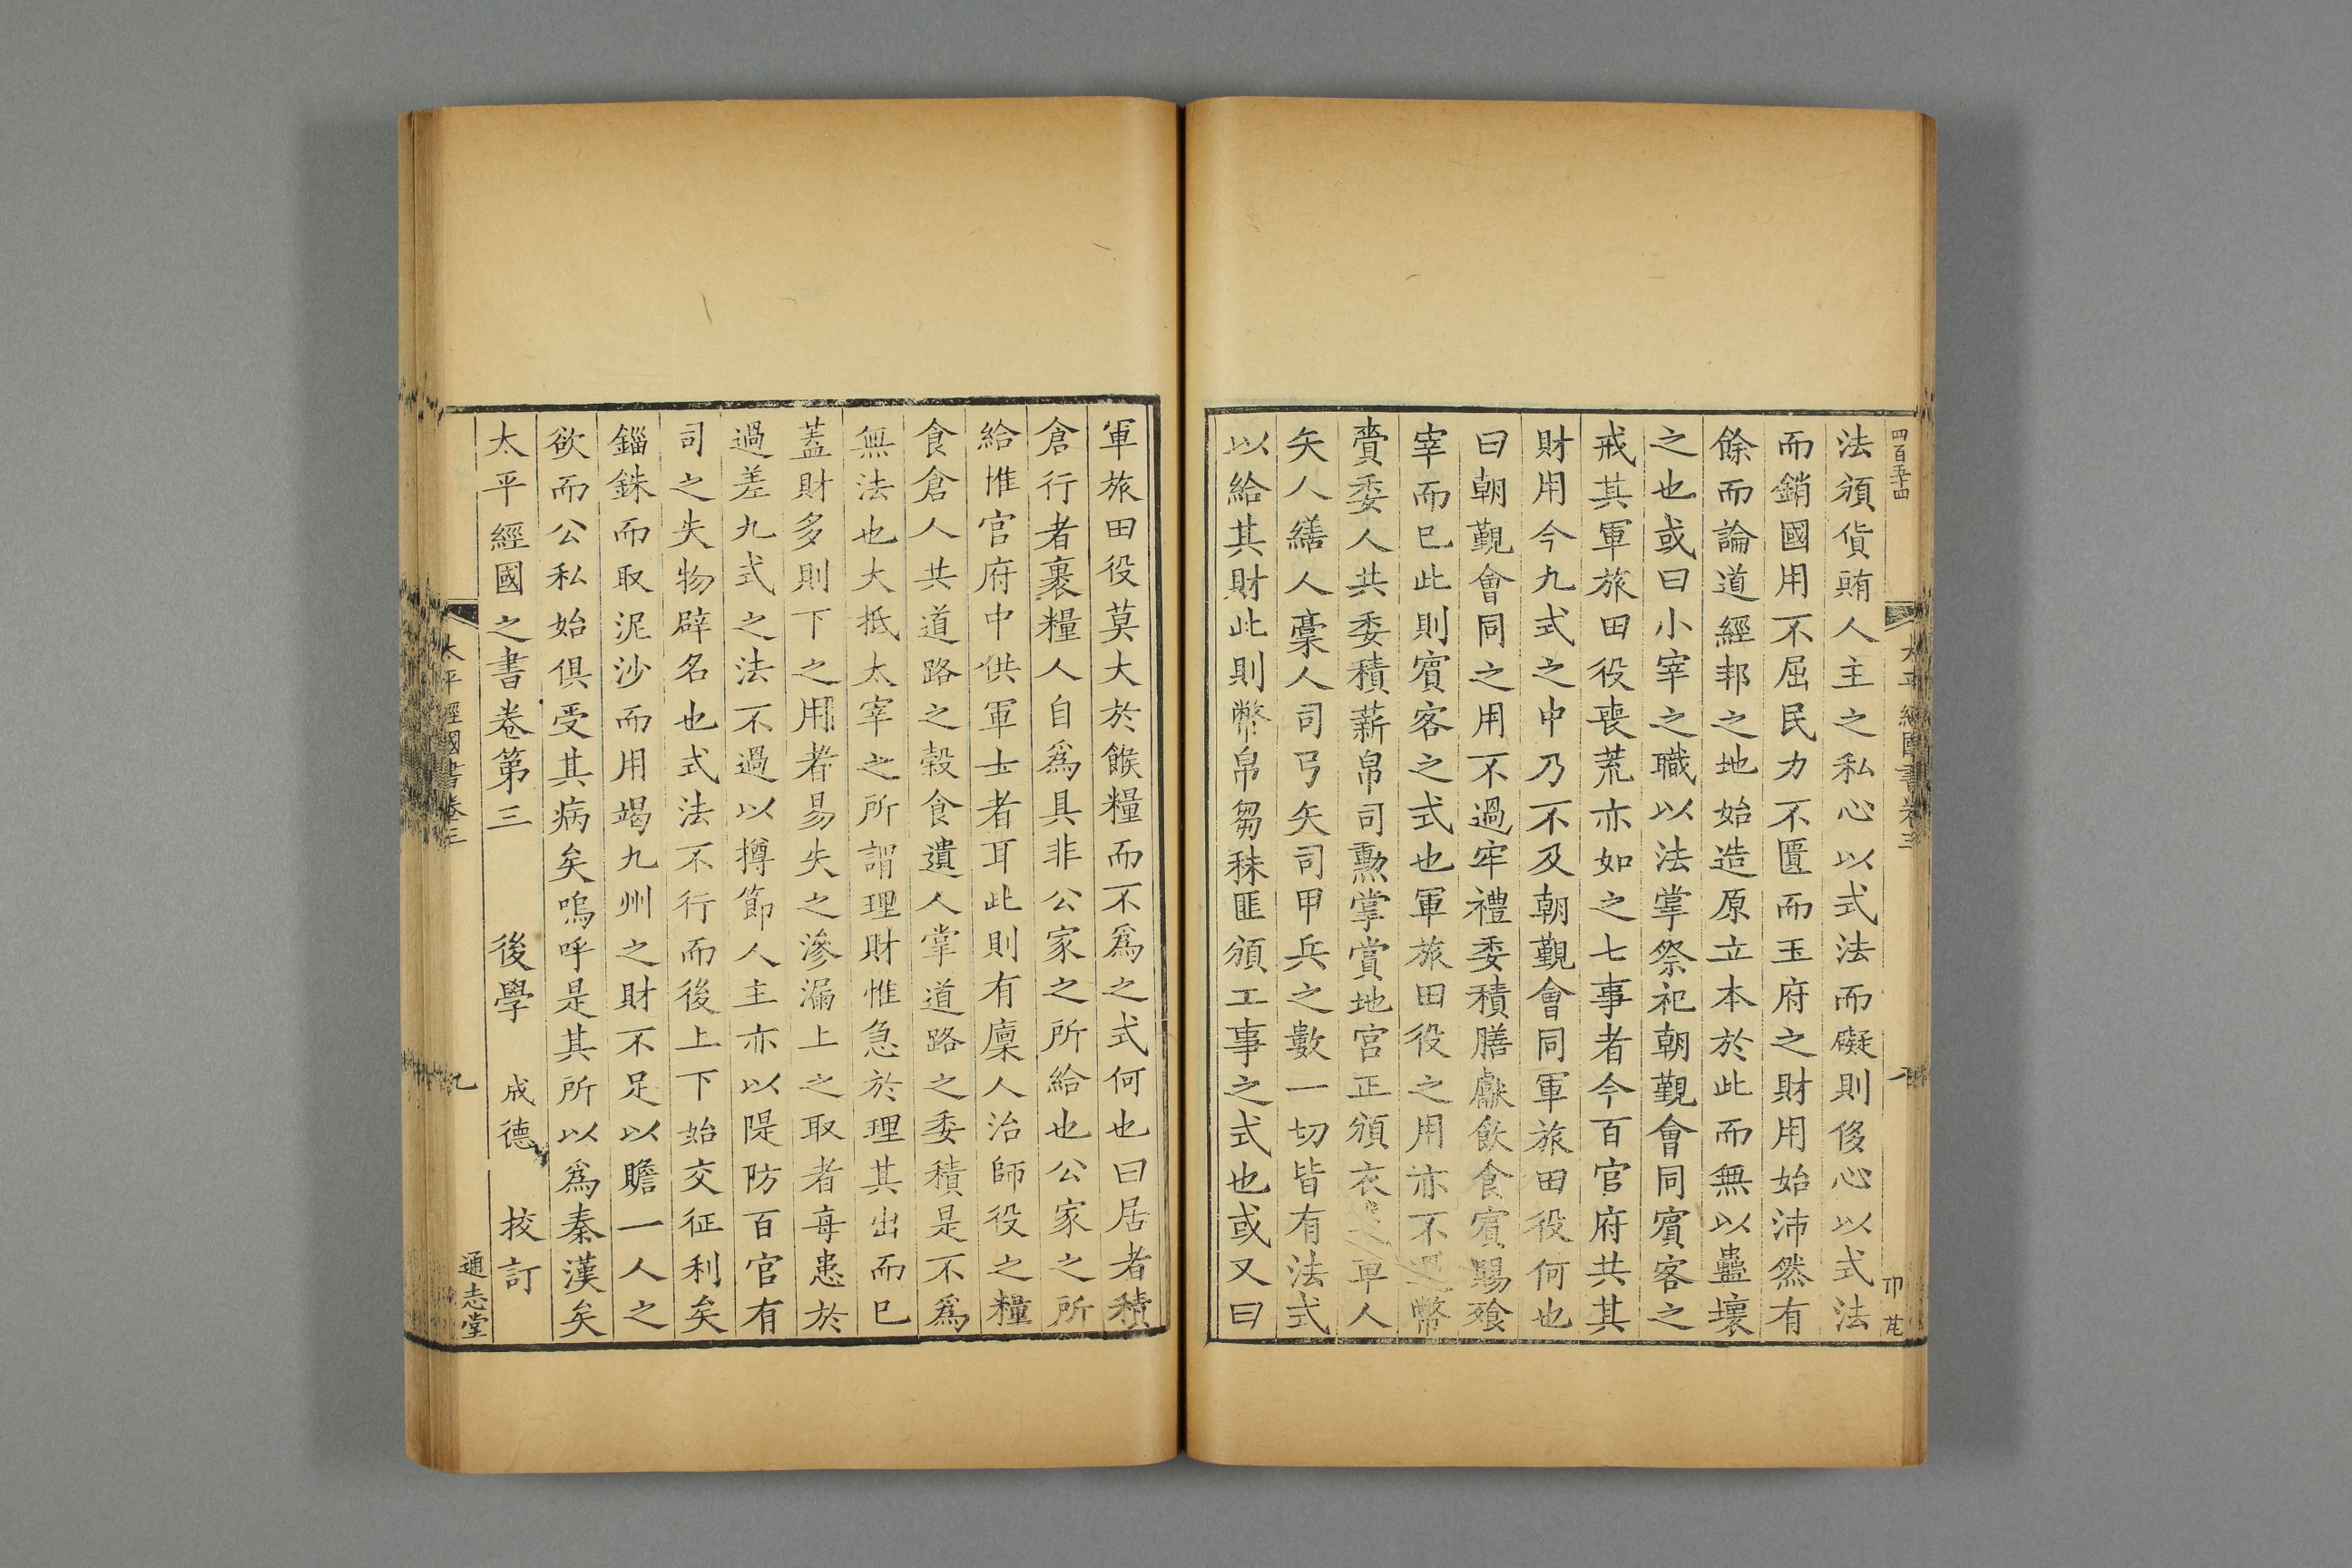 四百五十四
法頒貨賄人主之私心以式法而礙則侈心以式法
而銷國用不屈民力不匱而玉府之財用始沛然有
餘而論道經邦之地始造原立本於此而無以蠱壞
之也或曰小宰之職以法掌祭祀朝覲會同賓客之
戒其軍旅田役喪荒亦如之七事者今百官府共其
財用今九式之中乃不及朝覲會同軍旅田役何也
曰朝覲會同之用不過牢禮委積膳獻飲食賓賜飱
宰而已此則賓客之式也軍旅田役之用亦不過幣
賷委人共委積薪帛司勲掌賞地宫正頒衣裘車人
矢人繕人槀人司弓矢司甲兵之數一切皆有法式
以給其財此則幣帛芻秣匪頒工事之式也或又曰
軍旅田役莫大於餱糧而不爲之式何也曰居者積
倉行者裹糧人自爲具非公家之所給也公家之所
給惟官府中供軍士者耳此則有廩人治師役之糧
食倉人共道路之穀食遺人掌道路之委積是不爲
無法也大抵太宰之所謂理財惟急於理其出而已
蓋財多則下之用者易失之滲漏上之取者每患於
過差九式之法不過以撙節人主亦以隄防百官有
司之失物辟名也式法不行而後上下始交征利矣
錙銖而取泥沙而用竭九州之財不足以贍一人之
欲而公私始俱受其病矣嗚呼是其所以爲秦漢矣
太平經國之書卷第三 後學 成德 挍訂
太平經國書卷三 九 通志堂